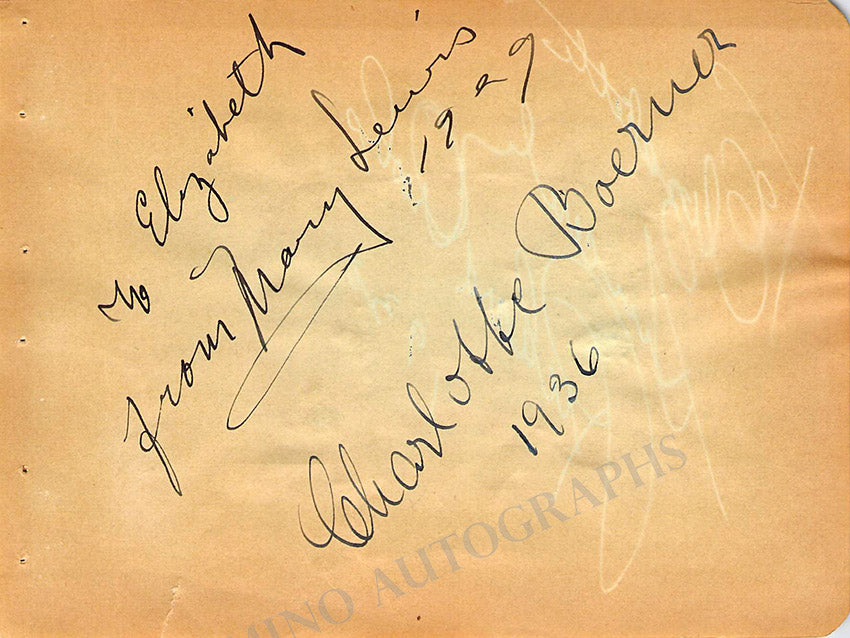 To Elizabeth
from Mary Lewis
1929
Charlotte Boerner
1936
MINO AUTOGRAPHS